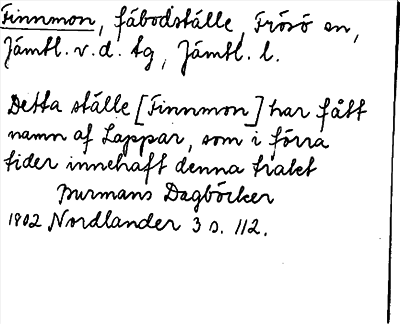 Finnmon, fäbodställe, Frösö sn,
Jämtl. v. d. tg, Jämtl. l.
Detta ställe [Finnmon] har fått
namn af Lappar, som i förra
tider innehaft denna tratet
Burmans Dagböcker
1902 Nordlander 3 s. 112.